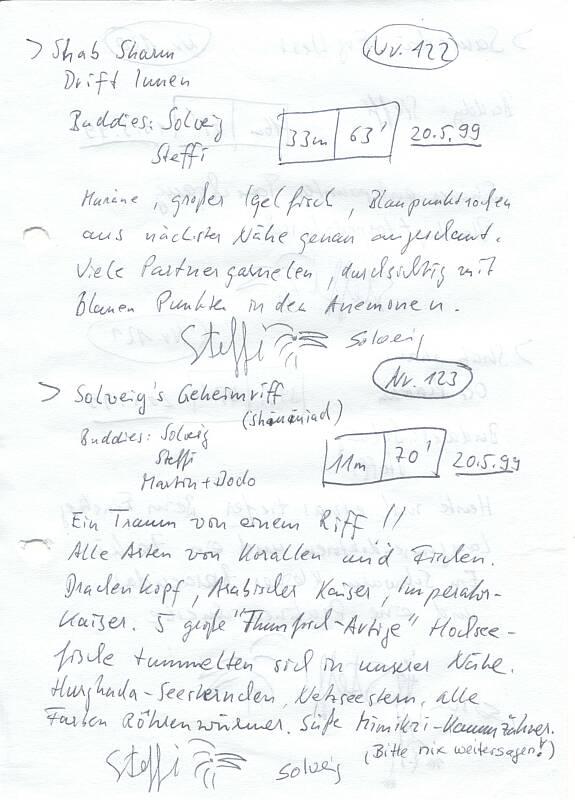 > Shab Sharm
Nr. 122
Drift Innen
Buddies: Solveig
Steffi
33m 63' 20.5.99
Muräne, großer Igelfisch, Blaupunktrochen
aus nächster Nähe genau angeschaut.
Viele Partnergarnelen, durchsichtig mit
blauen Punkten in den Anemonen.
Steffi Solveig
Nr. 123
> Solveig's Geheimriff
(Shananiad)
Buddies: Solveig
Steffi
Martin + Dodo
11m 70' 20.5.99
Ein Traum von einem Riff !!
Alle Arten von Korallen und Fischen.
Drachenkopf, Arabischer Kaiser, Imperator-
Kaiser. 5 große "Thunfisch-Artige" Hochsee-
fische tummelten sich in unserer Nähe.
Hurghada-Seesternchen, Netzseestern, alle
Farben Röhrenwürmer. Süße Mimikri-Kammzähner.
(Bitte nix weitersagen!)
Steffi Solveig